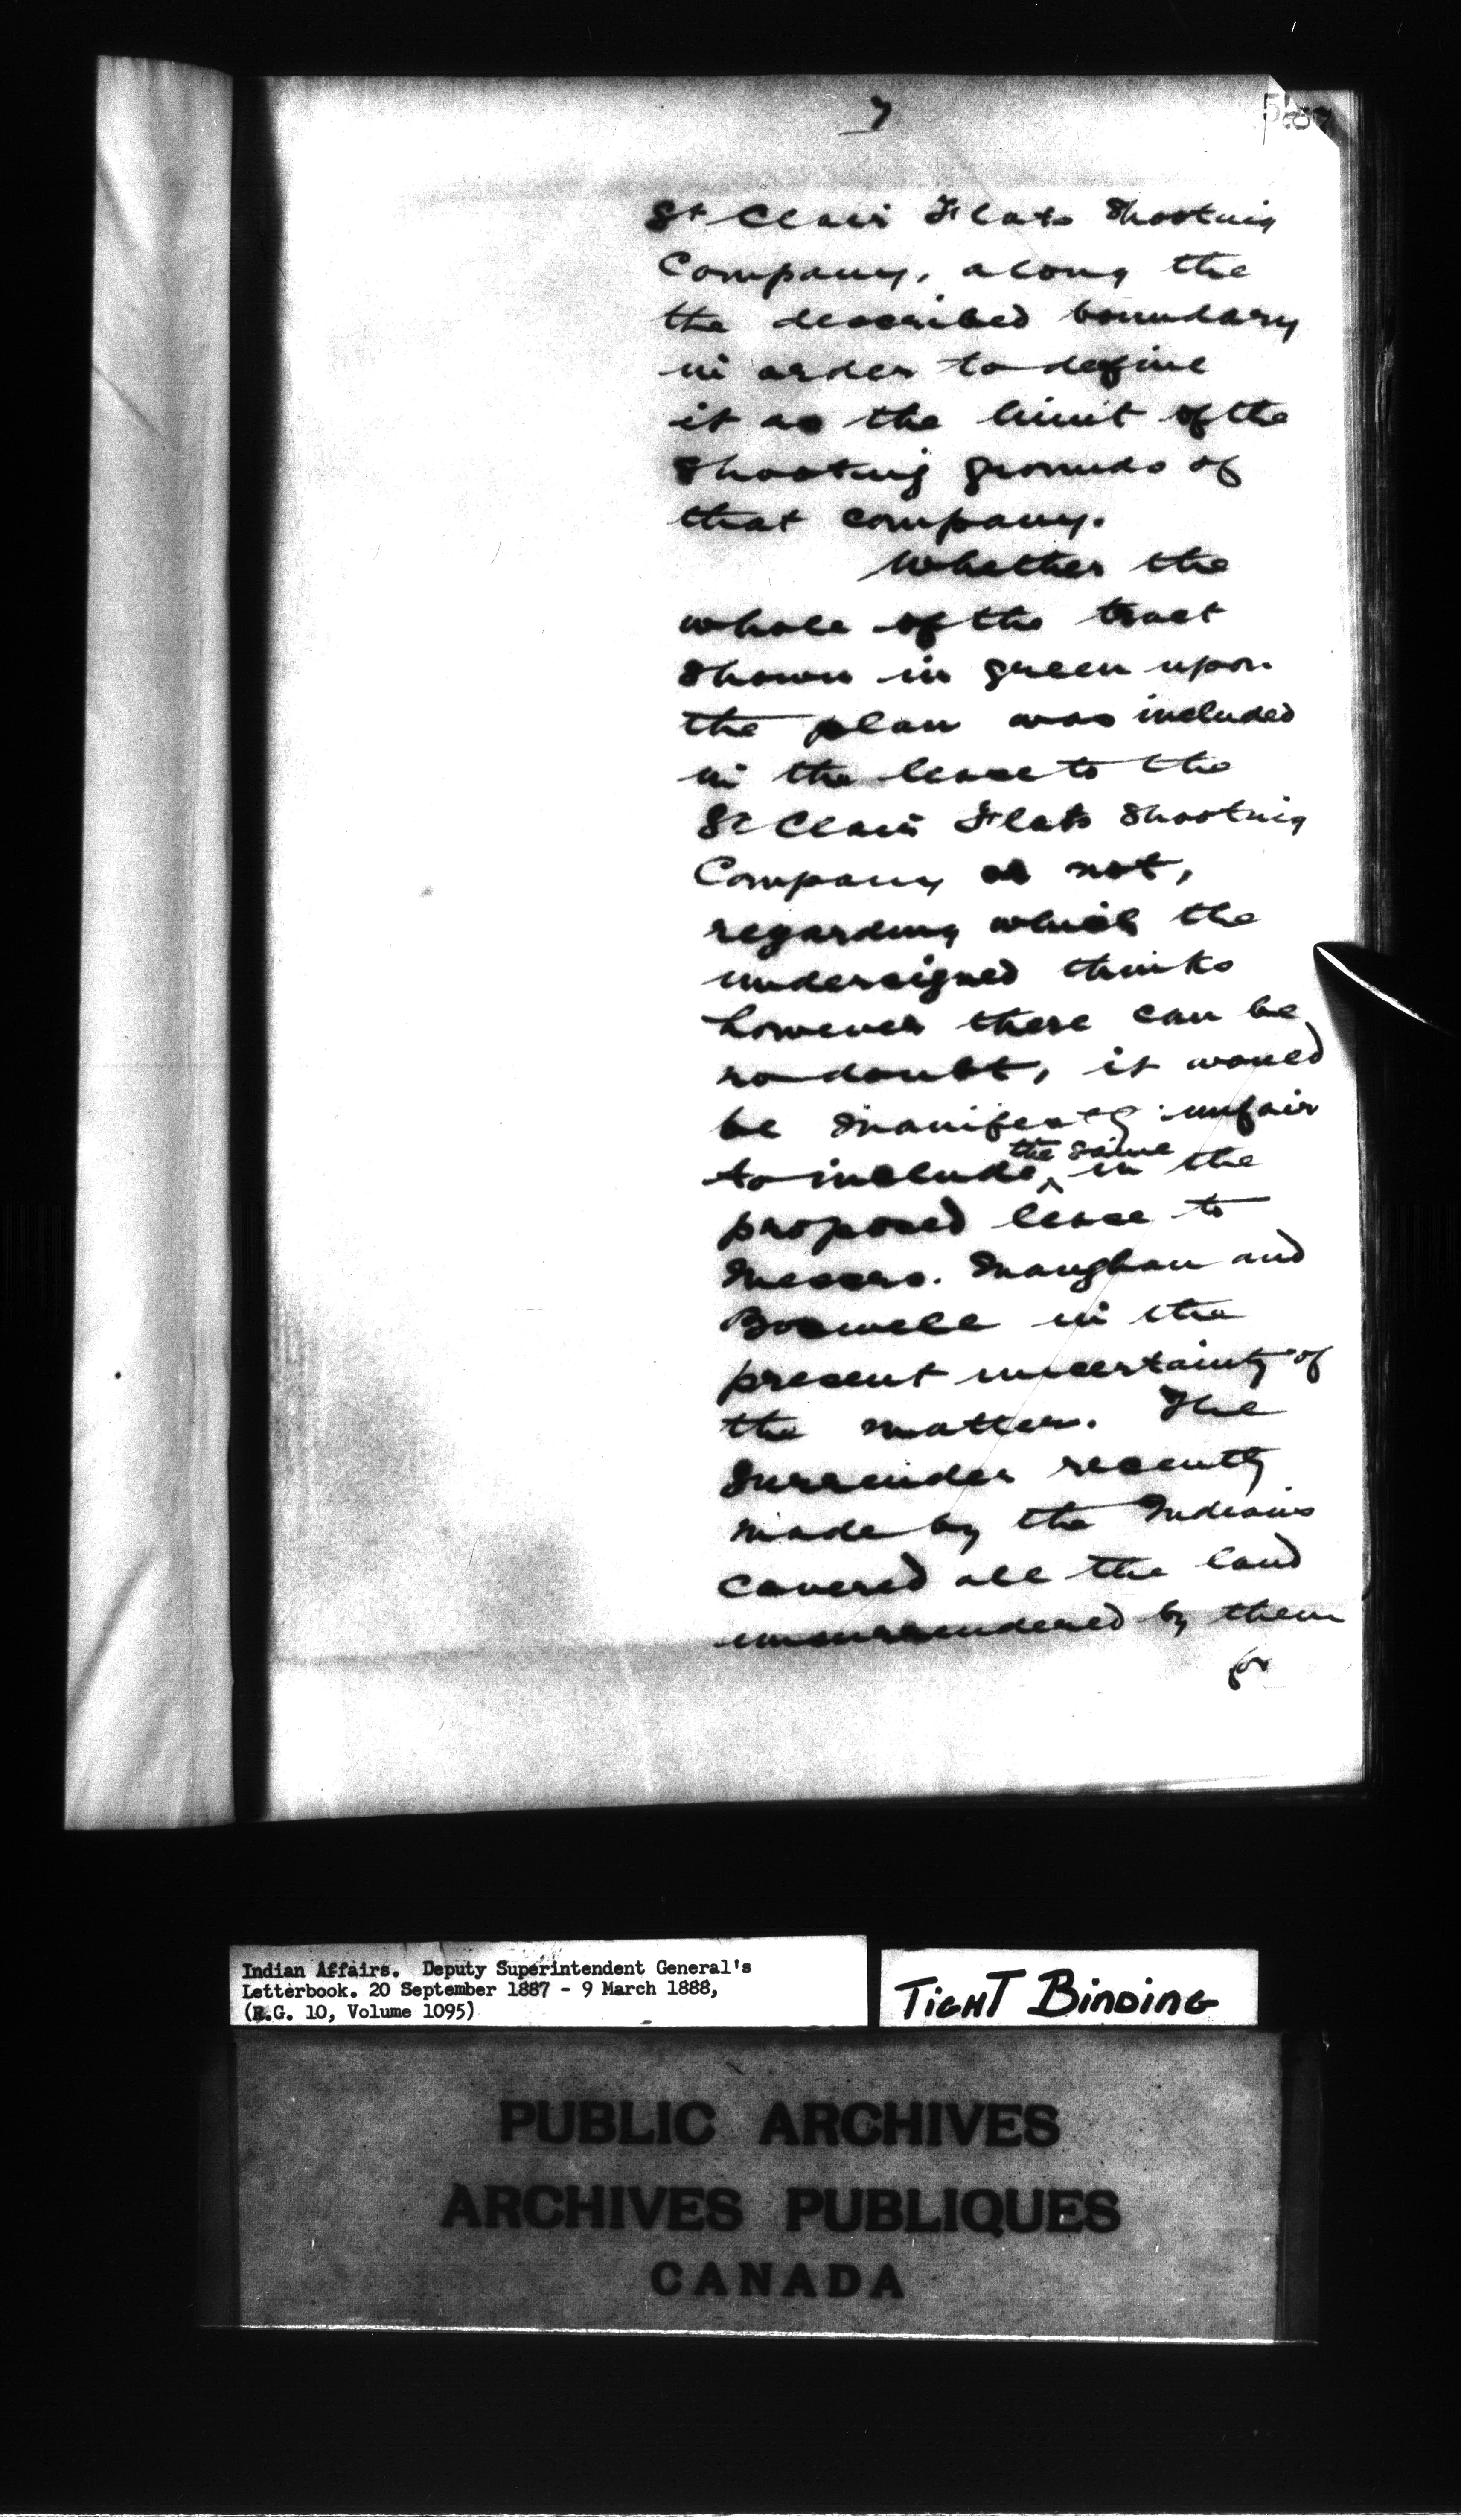 7
St Clair Flats Shooting
Company, along the
the described boundary
in order to define
it as the limit of the
Shooting grounds of
that company.
Whether the
whole of the tract
shown in green upon
the plan was included
in the lease to the
St Clair Flats Shooting
Company or not,
regarding which the
undersigned thinks
however there can be
no doubt, it would
be manifestly unfair
to include ^ the same in the
proposed lease to
Messrs. Maughan and
Boswell in the
present uncertainty of
the matter. The
Surrender recently
made by the Indians
covered all the land
unsurrendered by them
for
Indian Affairs. Deputy Superintendent General's
Letterbook. 20 September 1887 - 9 March 1888,
(R.G. 10, Volume 1095)
TIGHT BINDING
PUBLIC ARCHIVES
ARCHIVES PUBLIQUES
CANADA